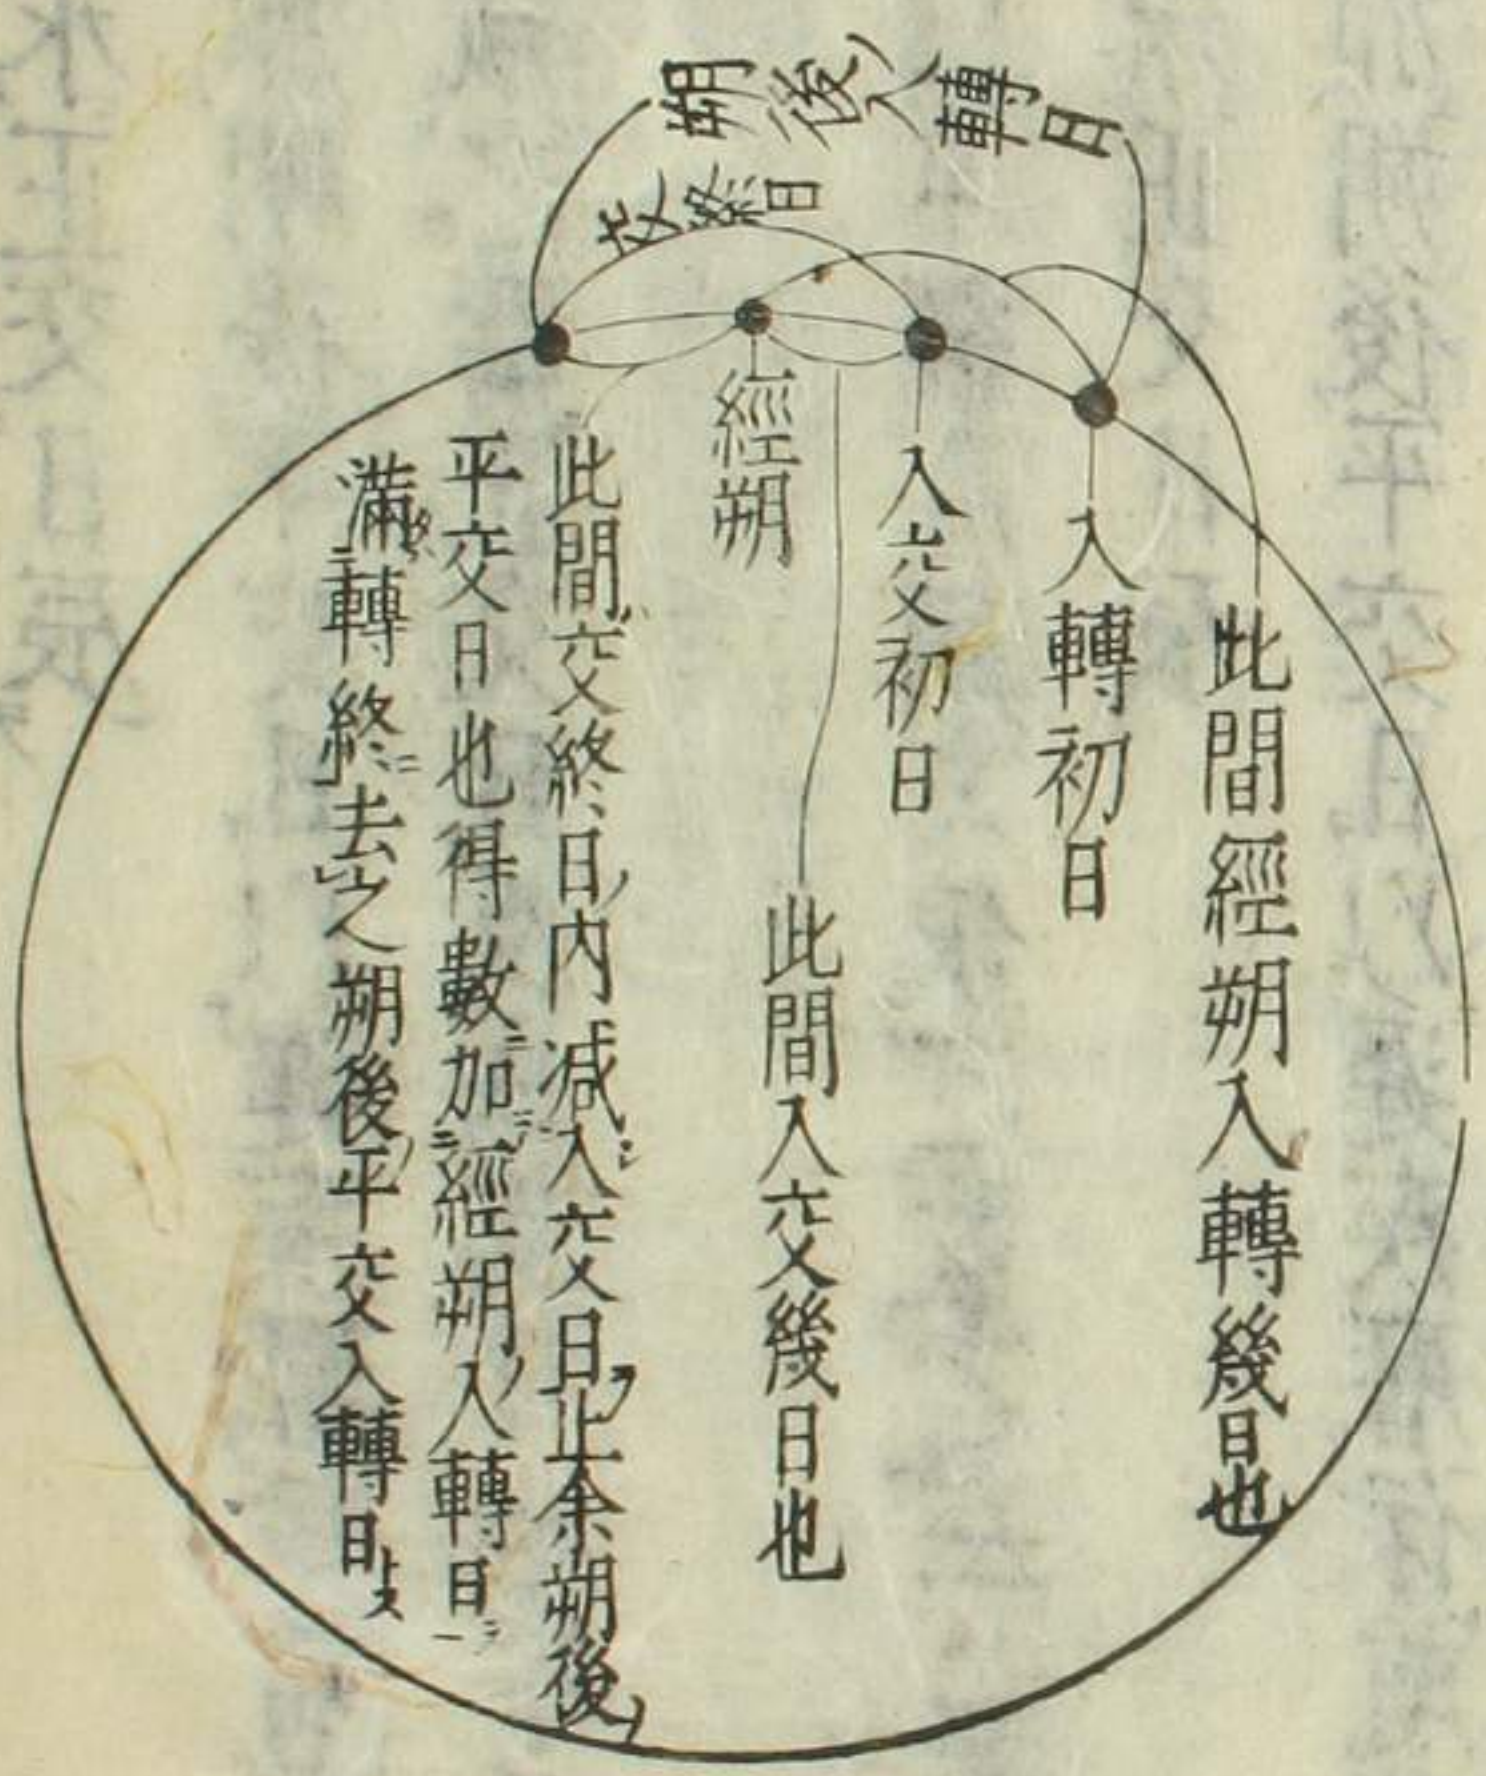 朔後入轉日
交終日
此間經朔入轉幾日也
入轉初日
入交初日
此間入交幾日也
經朔
此間交終日ノ内減入交日ヲ止余朔後ノ
平交日也得數ニ加ニ經朔ノ入轉日ニ一
滿ニ轉終ニ去之朔後ノ平交入轉日